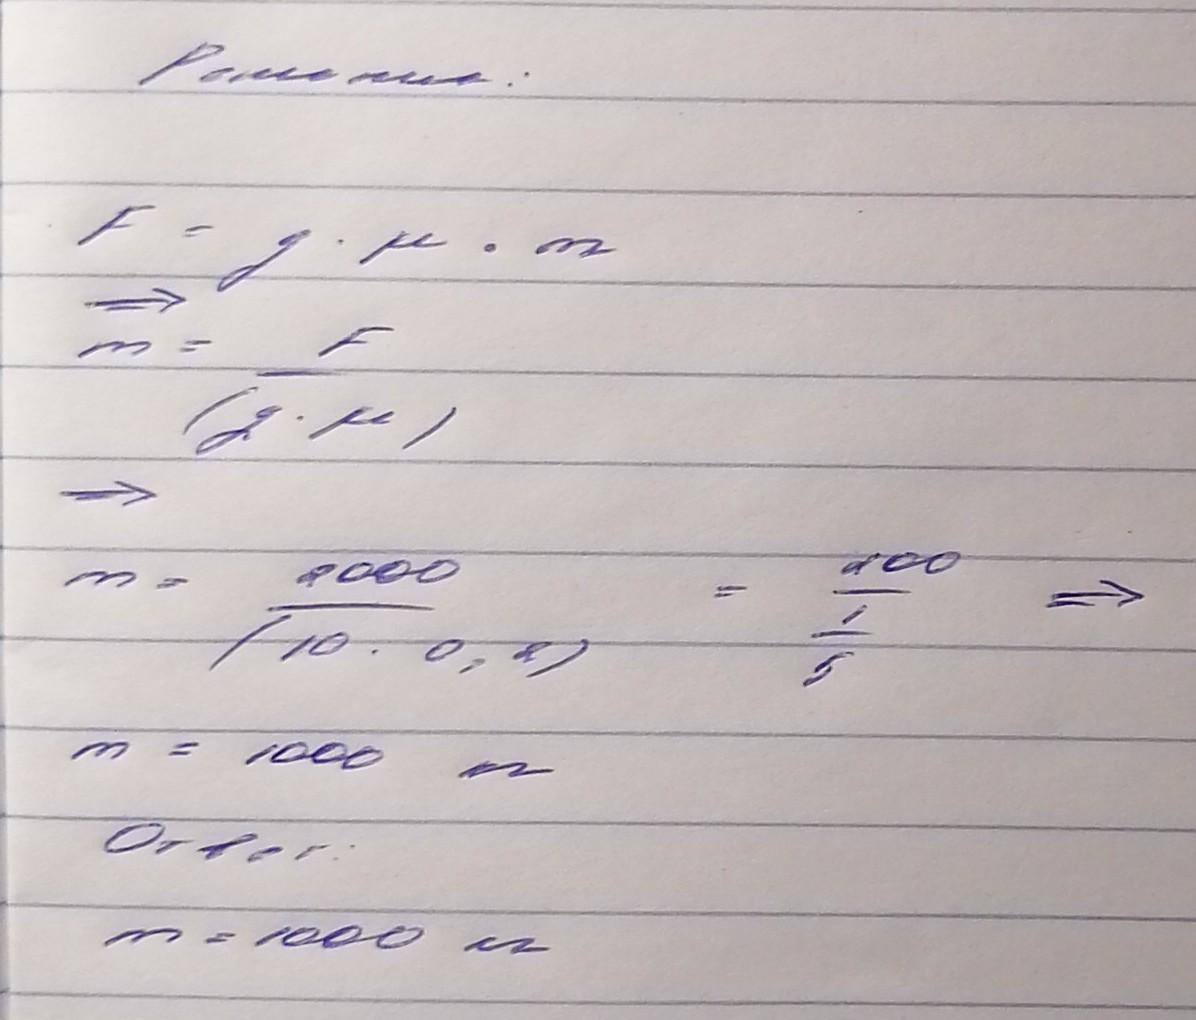 Решение:
F = g · μ · m
⇒
m = F / (g · μ)
⇒
m = 2000 / (10 · 0,2) = 200 / (1/5) ⇒
m = 1000 кг
Ответ:
m = 1000 кг